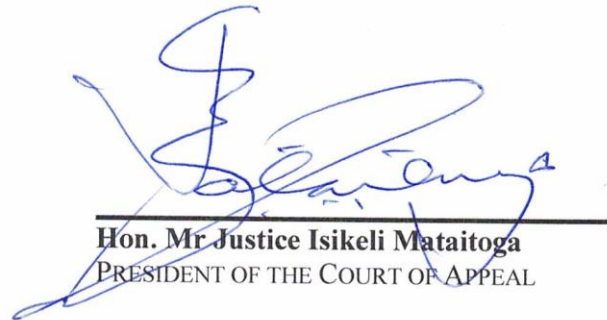 Hon. Mr Justice Isikeli Mataitoga
PRESIDENT OF THE COURT OF APPEAL